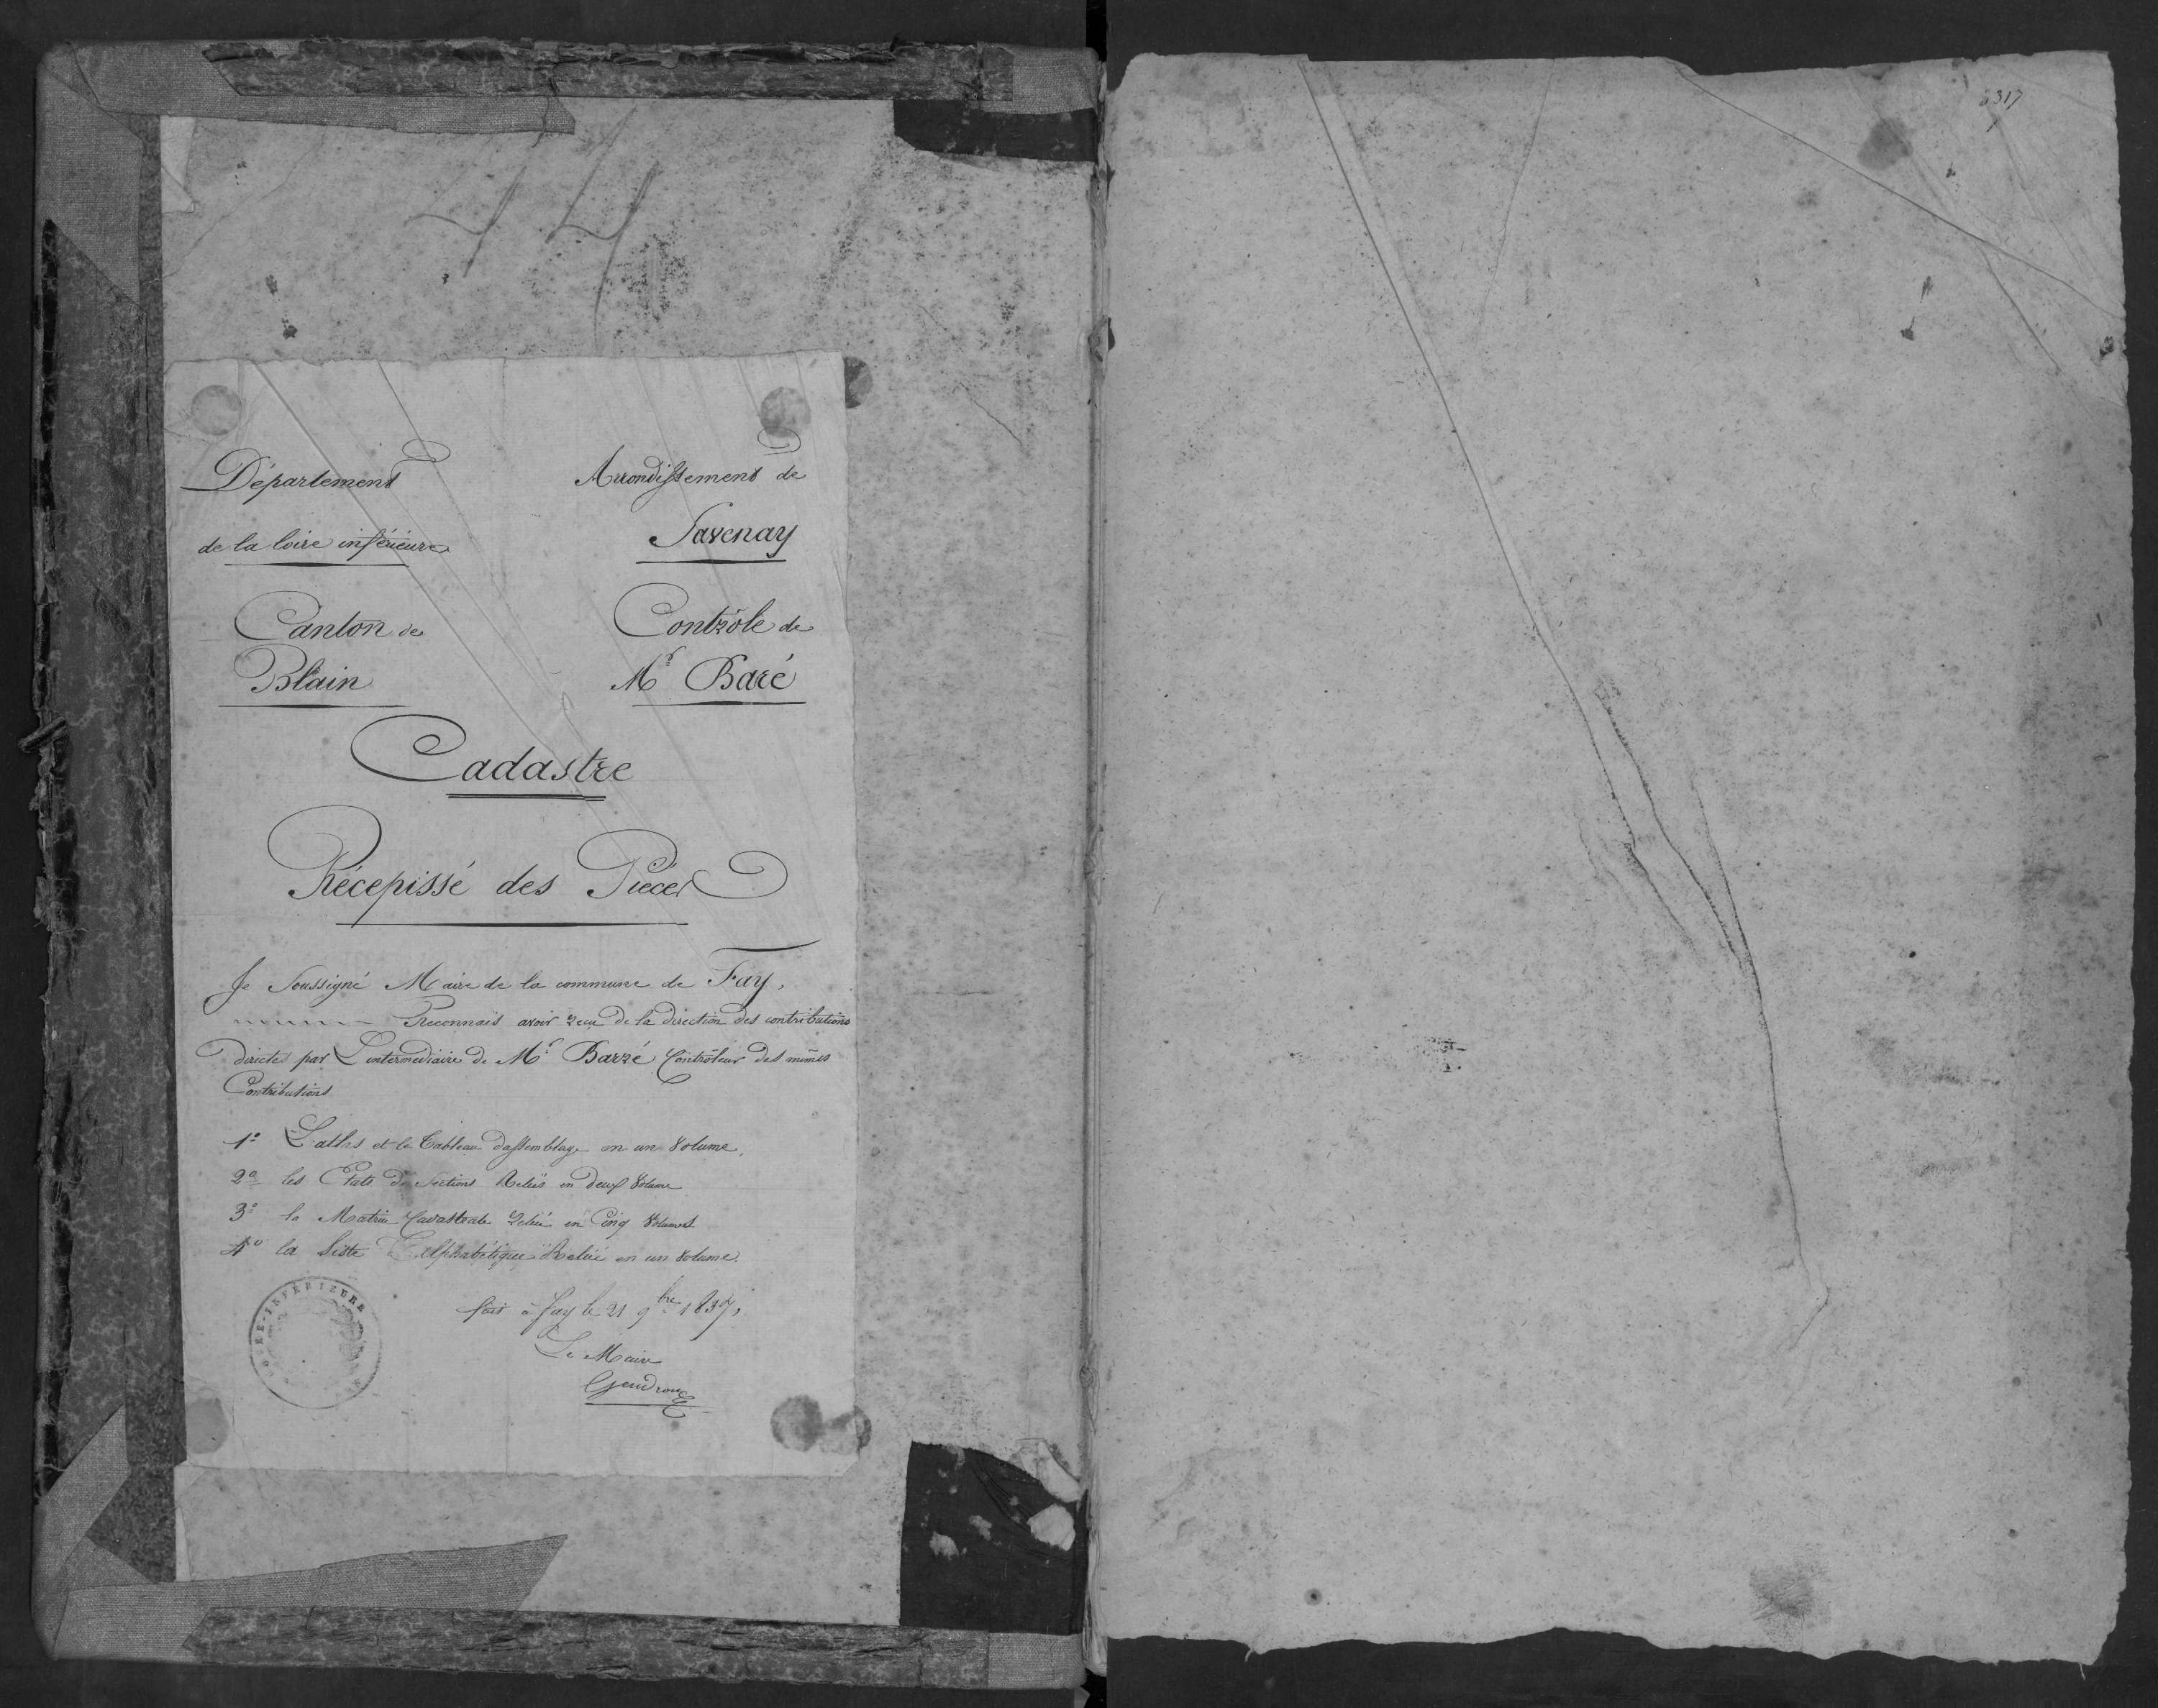 44
Département
de la loire inférieure
Arrondissement de
Savenay
Canton de
Blain
Contrôle de
Mr Baré
Cadastre
Récepissé des Pièces
Je Soussigné Maire de la commune de Fay,
Reconnais avoir recu de la direction des contributions
directes par L'intermediaire de Mr Barré Contrôleur des mêmes
Contributions
1º L'atlas et le Tableau d'assemblage en un Volume,
2º les Etats de Sections Reliés en deux Volume
3º la Matrice Cadastrale Reliée en Cinq Volumes
4º la Liste Alphabétique Reliée en un Volume.
LOIRE-INFÉRIEURE
fait à fay le 21 9bre 1837,
Le Maire
Gendron